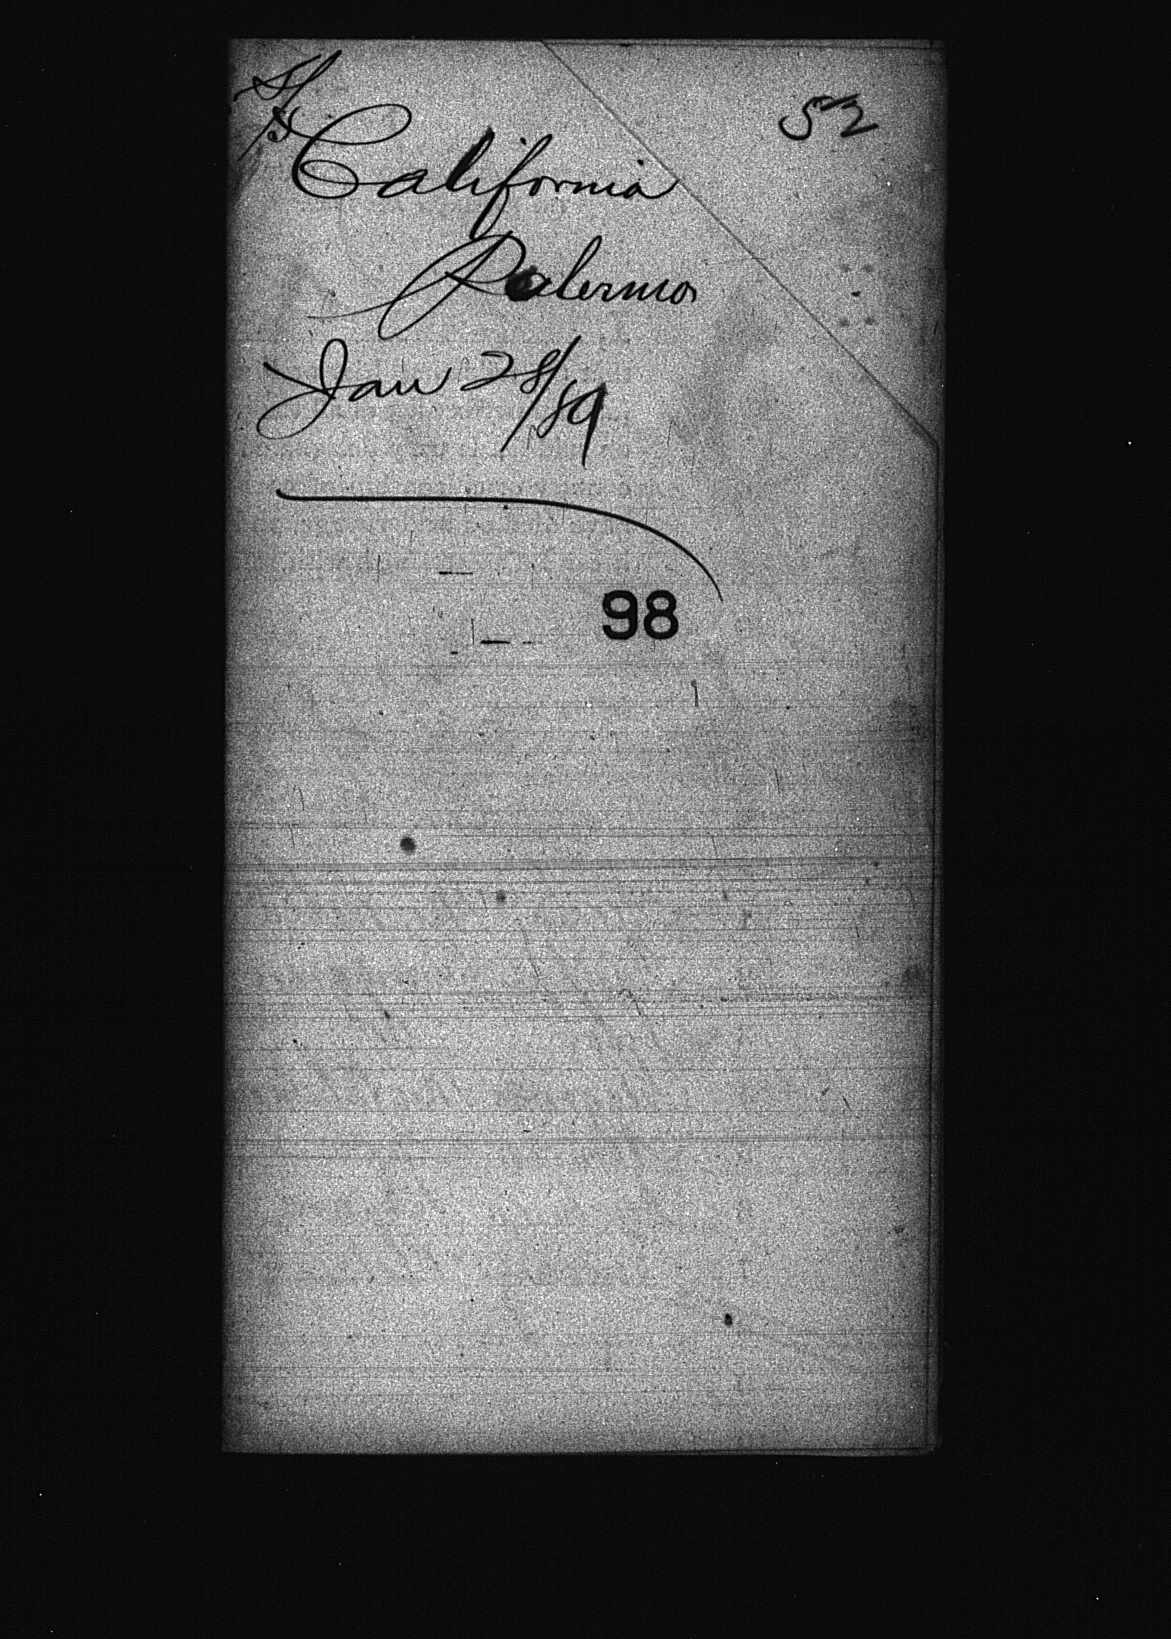 52
California
Palermo
Jan 28/89
98